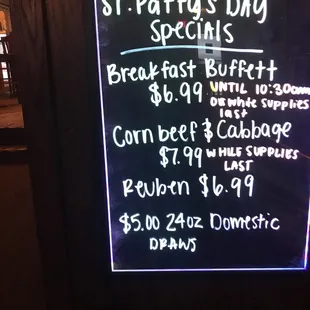 ST. Patty's DAY
Specials
Breakfast Buffett
$6.99 UNTIL 10:30am
OR While Supplies
last
Corn beef & Cabbage
$7.99 WHILE SUPPLIES
LAST
Reuben $6.99
$5.00 24oz Domestic
DRAWS